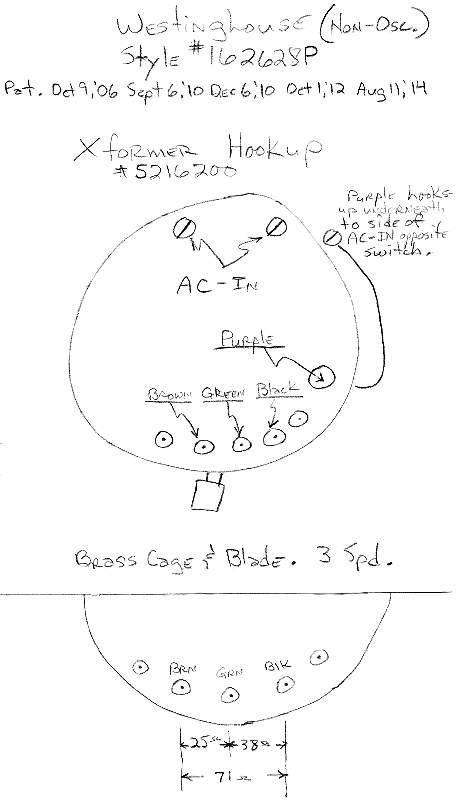 Westinghouse (Non-Osc.)
Style #162628P
Pat. Oct 9,'06 Sept 6,'10 Dec 6,'10 Oct 1,'12 Aug 11,'14
Xformer Hookup
#5216200
Purple hooks-
up underneath
to side of
AC-IN opposite
switch.
AC-IN
Purple
Brown Green Black
Brass Cage & Blade. 3 Spd.
BRN GRN BlK
25Ω 38Ω
71Ω